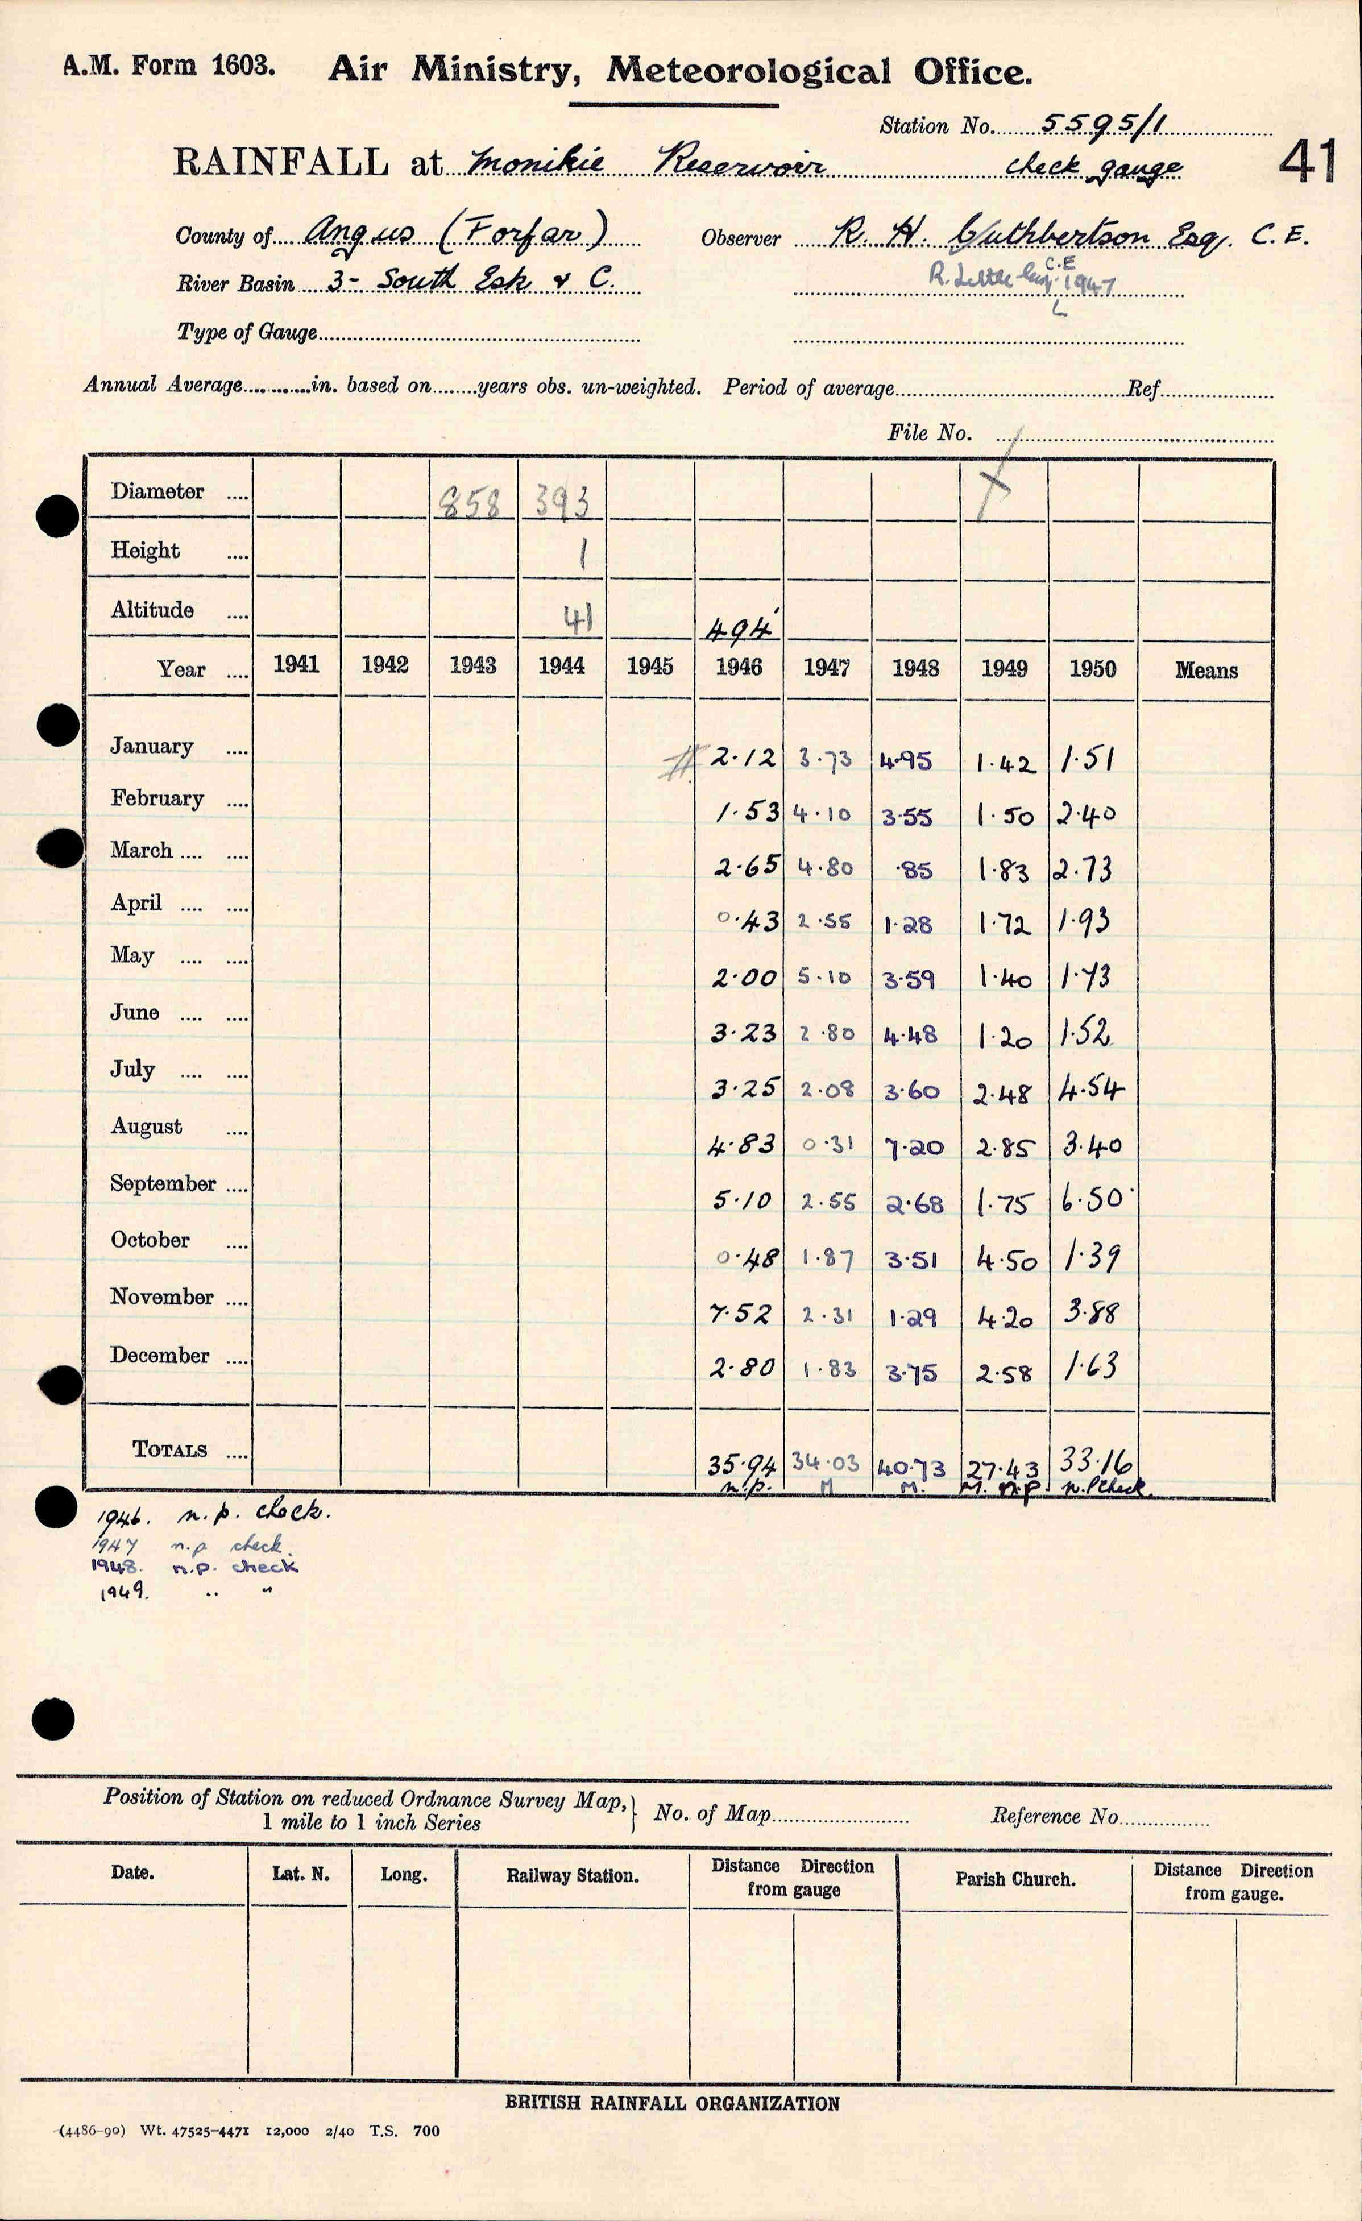 A.M. Form 1603. Air Ministry, Meteorological Office.
Station No. 5595/1
RAINFALL at Monikie Reservoir check gauge
41
County of Angus (Forfar) Observer R. H. Cuthbertson Esq. C.E.
River Basin 3- South Esk & C. R. Little Esq. C.E 1947
Type of Gauge
Annual Average in. based on years obs. un-weighted. Period of average Ref
File No.
Diameter .... 858 393
Height .... 1
Altitude .... 41 494'
Year .... 1941 1942 1943 1944 1945 1946 1947 1948 1949 1950 Means
January .... # 2.12 3.73 4.95 1.42 1.51
February .... 1.53 4.10 3.55 1.50 2.40
March .... .... 2.65 4.80 .85 1.83 2.73
April .... .... 0.43 2.55 1.28 1.72 1.93
May .... .... 2.00 5.10 3.59 1.40 1.73
June .... .... 3.23 2.80 4.48 1.20 1.52
July .... .... 3.25 2.08 3.60 2.48 4.54
August .... 4.83 0.31 7.20 2.85 3.40
September .... 5.10 2.55 2.68 1.75 6.50
October .... 0.48 1.87 3.51 4.50 1.39
November .... 7.52 2.31 1.29 4.20 3.88
December .... 2.80 1.83 3.75 2.58 1.63
TOTALS .... 35.94 34.03 40.73 27.43 33.16
n.p. M M. M. n.p. n.p check.
1946. n.p. check.
1947 n.p check.
1948. n.p. check
1949. .. "
Position of Station on reduced Ordnance Survey Map, 1 mile to 1 inch Series } No. of Map Reference No.
Date. Lat. N. Long. Railway Station. Distance Direction from gauge Parish Church. Distance Direction from gauge.
BRITISH RAINFALL ORGANIZATION
(4486-90) Wt. 47525-4471 12,000 2/40 T.S. 700